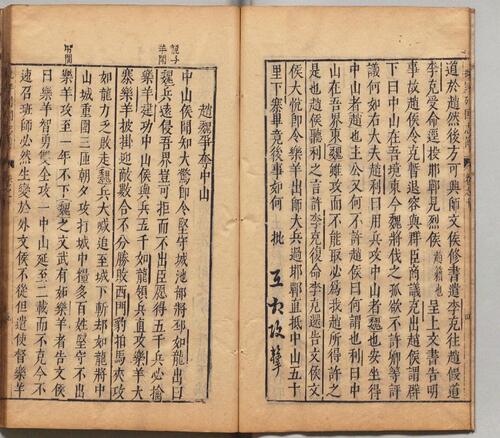 道於趙然後方可興師文侯修書遣李克往趙假道
李克受命逕投邯鄲見烈侯趙籍也呈上文書告明
事故趙侯令克暫退容與群臣商議克出趙侯謂群
下曰中山在吾境東今魏將伐之孤欲不許卿等評
議何如右大夫趙利曰用兵攻中山者魏也安坐得
中山者趙也主公又何不許趙侯曰何謂也利曰中
山在吾界東魏雖攻而不能取必為我趙所得許之
是也趙侯聽利之言許李克復命李克還告文侯文
侯大悅即令樂羊出師大兵過邯鄲直抵中山五十
里下寨畢竟後事如何
批
趙魏爭奪中山
中山侯聞知大驚即令堅守城池部將邳如龍出曰
魏兵遠侵吾界豈可拒而不出臣愿得五千兵必擒
樂羊建功中山侯與兵五千如龍領兵直攻樂羊大
寨樂羊披掛迎敵數合不分勝敗西門豹拍馬夾攻
如龍力乏敗走魏兵大喊追至城下斬却如龍將中
山城重圍三匝朝夕攻打城中糧多百姓堅守不出
樂羊攻至一年不下魏之文武有妬樂羊者告文侯
曰樂羊智勇雙全攻一中山延至二載而不克今不
速召班師必然生變於外文侯不從但遣使督樂羊